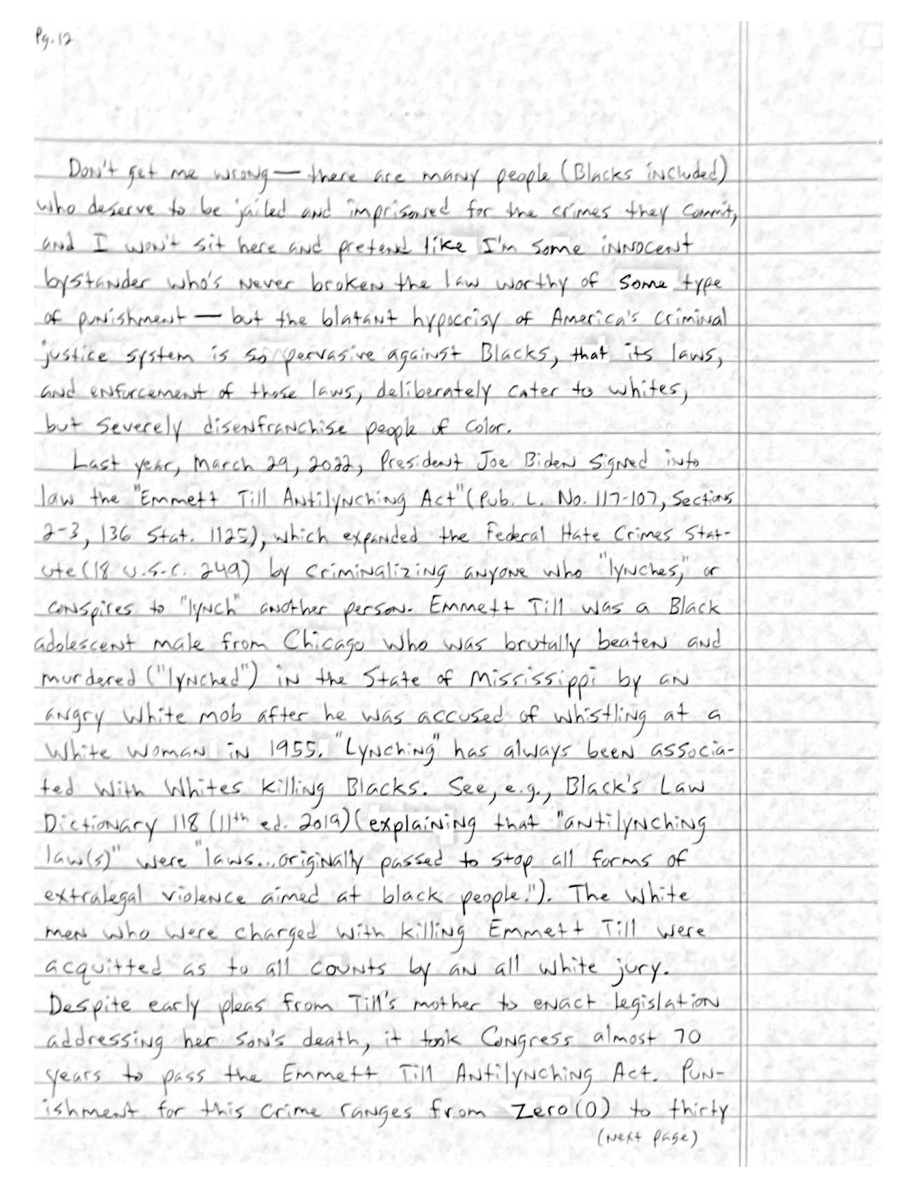 Pg. 12
Don't get me wrong — there are many people (Blacks included)
who deserve to be jailed and imprisoned for the crimes they commit,
and I won't sit here and pretend like I'm some innocent
bystander who's never broken the law worthy of some type
of punishment — but the blatant hypocrisy of America's criminal
justice system is so pervasive against Blacks, that its laws,
and enforcement of those laws, deliberately cater to whites,
but severely disenfranchise people of color.
Last year, March 29, 2022, President Joe Biden signed into
law the "Emmett Till Antilynching Act" (Pub. L. No. 117-107, Sections
2-3, 136 Stat. 1125), which expanded the Federal Hate Crimes Stat-
ute (18 U.S.C. 249) by criminalizing anyone who "lynches," or
conspires to "lynch" another person. Emmett Till was a Black
adolescent male from Chicago who was brutally beaten and
murdered ("lynched") in the State of Mississippi by an
angry White mob after he was accused of whistling at a
White woman in 1955. "Lynching" has always been associa-
ted with Whites killing Blacks. See, e.g., Black's Law
Dictionary 118 (11th ed. 2019) (explaining that "antilynching
law(s)" were "laws...originally passed to stop all forms of
extralegal violence aimed at black people."). The White
men who were charged with killing Emmett Till were
acquitted as to all counts by an all white jury.
Despite early pleas from Till's mother to enact legislation
addressing her son's death, it took Congress almost 70
years to pass the Emmett Till Antilynching Act. Pun-
ishment for this crime ranges from Zero (0) to thirty
(Next Page)